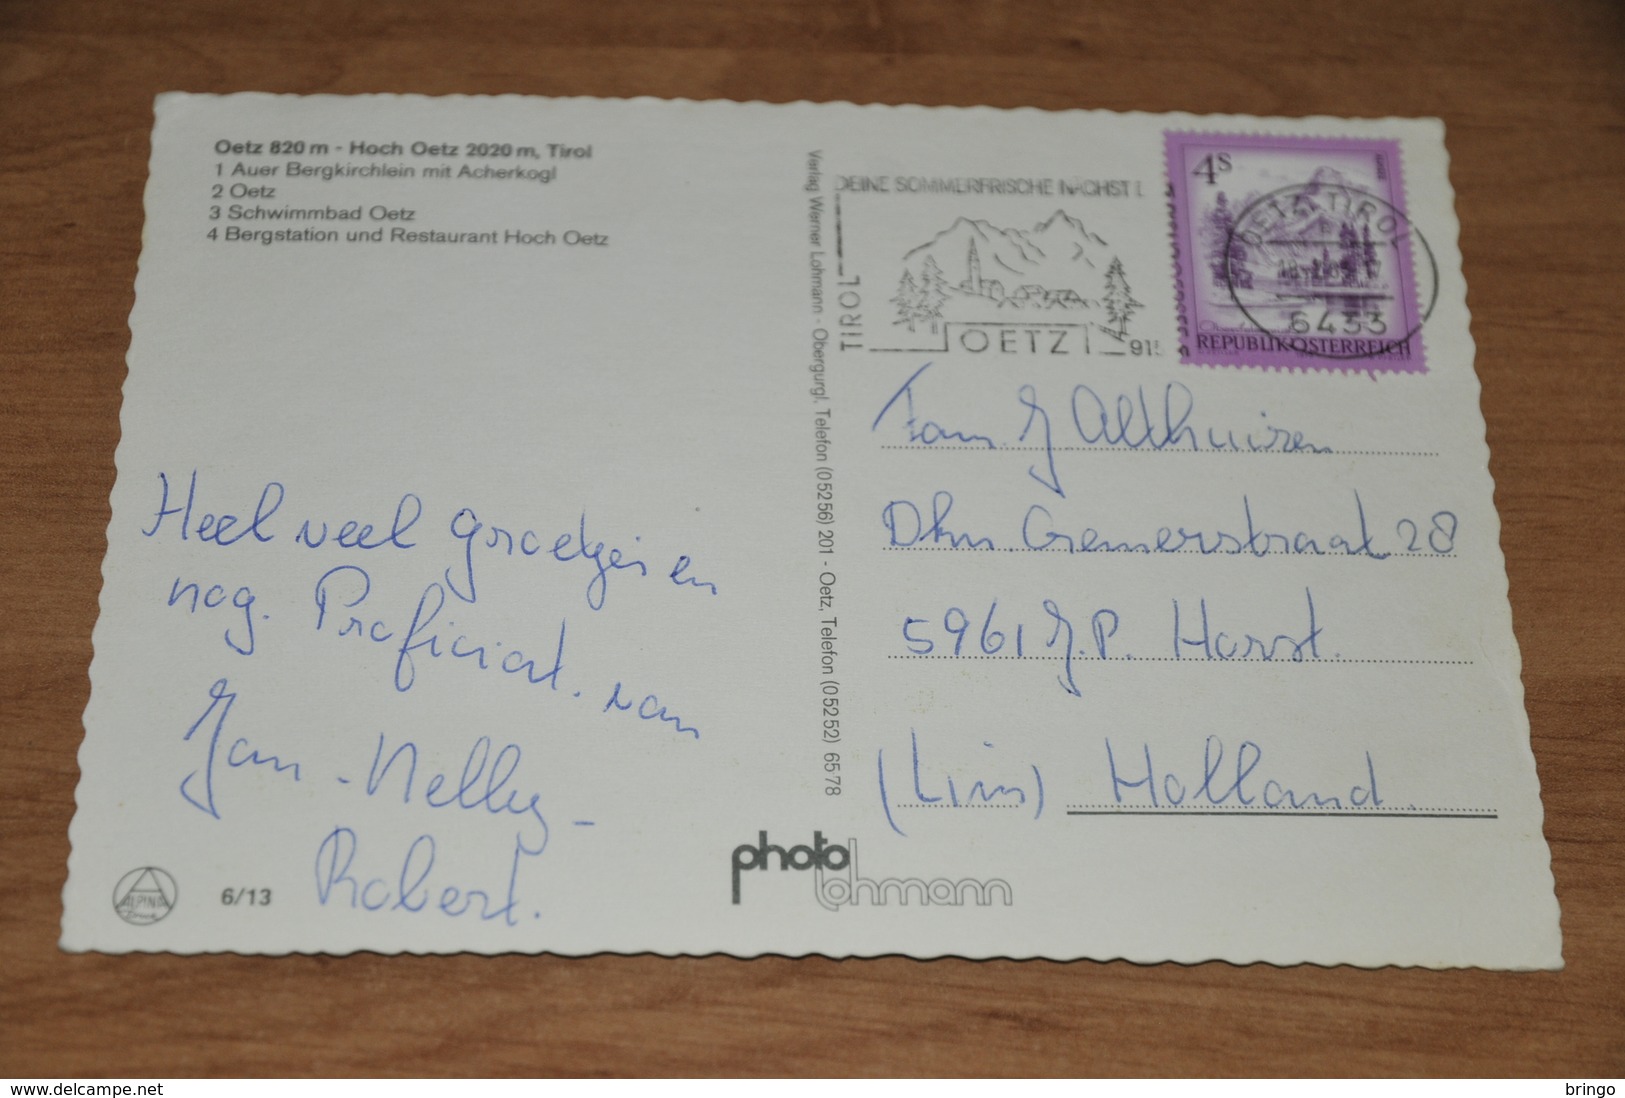 Oetz 820 m - Hoch Oetz 2020 m, Tirol
1 Auer Bergkirchlein mit Acherkogl
2 Oetz
3 Schwimmbad Oetz
4 Bergstation und Restaurant Hoch Oetz
Heel veel groetjes en
nog. Proficiat. van
Jan - Nelly -
Robert.
ALPINA
6/13
Verlag Werner Lohmann - Obergurgl, Telefon (05256) 201 - Oetz, Telefon (05252) 6578
photo
lohmann
DEINE SOMMERFRISCHE NÄCHST
TIROL
OETZ
915
4S
REPUBLIK ÖSTERREICH
OETZ, TIROL
6433
Fam. J. Althuizen
Dkm. Cremerstraat 28
5961 J.P. Horst.
(Lim) Holland.
www.delcampe.net
bringo